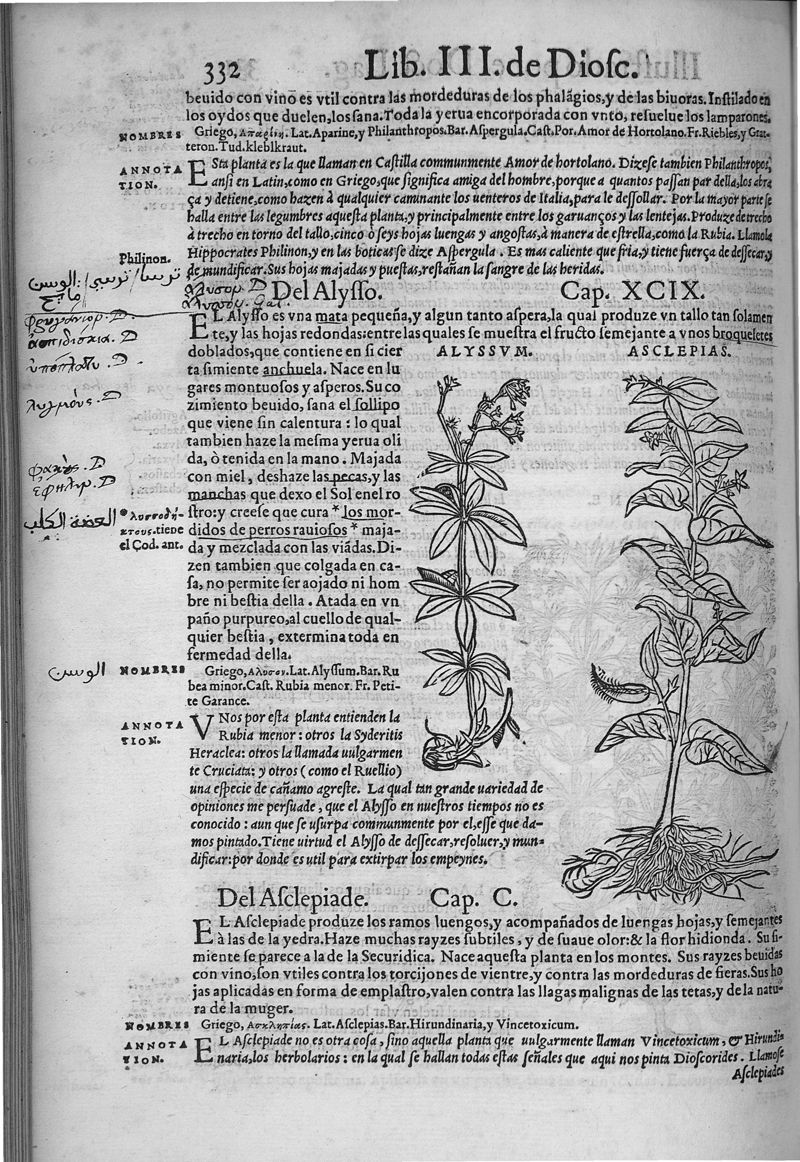 332
Lib. III. de Diosc.
beuido con vino es vtil contra las mordeduras de los phalãgios, y de las biuoras. Instilado en
los oydos que duelen, los sana. Toda la yerua encorporada con vnto, resuelue los lamparones.
NOMBRES Griego, Απαρίνη. Lat. Aparine, y Philanthropos. Bar. Aspergula. Cast. Por. Amor de Hortolano. Fr. Riebles, y Grat-
teron. Tud. kleblkraut.
ANNOTA
TION.
ESta planta es la que llaman en Castilla communmente Amor de hortolano. Dizese tambien Philanthropos,
ansi en Latin, como en Griego, que significa amiga del hombre, porque a quantos passan par della, los abra
ça y detiene, como hazen à qualquier caminante los uenteros de Italia, para le dessollar. Por la mayor parte se
halla entre las legumbres aquesta planta, y principalmente entre los garuanços y las lentejas. Produze de trecho
à trecho en torno del tallo, cinco ò seys hojas luengas y angostas, à manera de estrella, como la Rubia. Llamola
Philinon.
Hippocrates Philinon, y en las boticas se dize Aspergula. Es mas caliente que fria, y tiene fuerça de dessecar, y
de mundificar. Sus hojas majadas y puestas, restañan la sangre de las heridas.
الوسن
Del Alysso. Cap. XCIX.
EL Alysso es vna mata pequeña, y algun tanto aspera, la qual produze vn tallo tan solamen
te, y las hojas redondas: entre las quales se muestra el fructo semejante a vnos broqueletes
doblados, que contiene en si cier
ta simiente anchuela. Nace en lu
gares montuosos y asperos. Su co
zimiento beuido, sana el sollipo
que viene sin calentura: lo qual
tambien haze la mesma yerua oli
da, ò tenida en la mano. Majada
con miel, deshaze las pecas, y las
manchas que dexo el Sol en el ro
stro: y creese que cura * los mor-
didos de perros rauiosos * maja-
da y mezclada con las viãdas. Di-
zen tambien que colgada en ca-
sa, no permite ser aojado ni hom
bre ni bestia della. Atada en vn
paño purpureo, al cuello de qual-
quier bestia, extermina toda en
fermedad della.
ALYSSVM.
ASCLEPIAS.
العضة الكلب
* λυσσοδή-
κτους. tiene
el Cod. ant.
الوسن
NOMBRES Griego, Αλυσον. Lat. Alyssum. Bar. Ru
bea minor. Cast. Rubia menor. Fr. Peti-
te Garance.
ANNOTA
TION.
VNos por esta planta entienden la
Rubia menor: otros la Syderitis
Heraclea: otros la llamada uulgarmen
te Cruciata: y otros (como el Ruellio)
una especie de cañamo agreste. La qual tan grande uariedad de
opiniones me persuade, que el Alysso en nuestros tiempos no es
conocido: aun que se usurpa communmente por el, esse que da-
mos pintado. Tiene uirtud el Alysso de dessecar, resoluer, y mun-
dificar: por donde es util para extirpar los empeynes.
Del Asclepiade. Cap. C.
EL Asclepiade produze los ramos luengos, y acompañados de luengas hojas, y semejantes
à las de la yedra. Haze muchas rayzes subtiles, y de suaue olor: & la flor hidionda. Su si-
miente se parece a la de la Securidica. Nace aquesta planta en los montes. Sus rayzes beuidas
con vino, son vtiles contra los torcijones de vientre, y contra las mordeduras de fieras. Sus ho
jas aplicadas en forma de emplastro, valen contra las llagas malignas de las tetas, y de la natu-
ra de la muger.
NOMBRES Griego, Ασκληπίας. Lat. Asclepias. Bar. Hirundinaria, y Vincetoxicum.
ANNOTA
TION.
EL Asclepiade no es otra cosa, sino aquella planta que uulgarmente llaman Vincetoxicum, & Hirundi
naria, los herbolarios: en la qual se hallan todas estas señales que aqui nos pinta Dioscorides. Llamose
Asclepiades